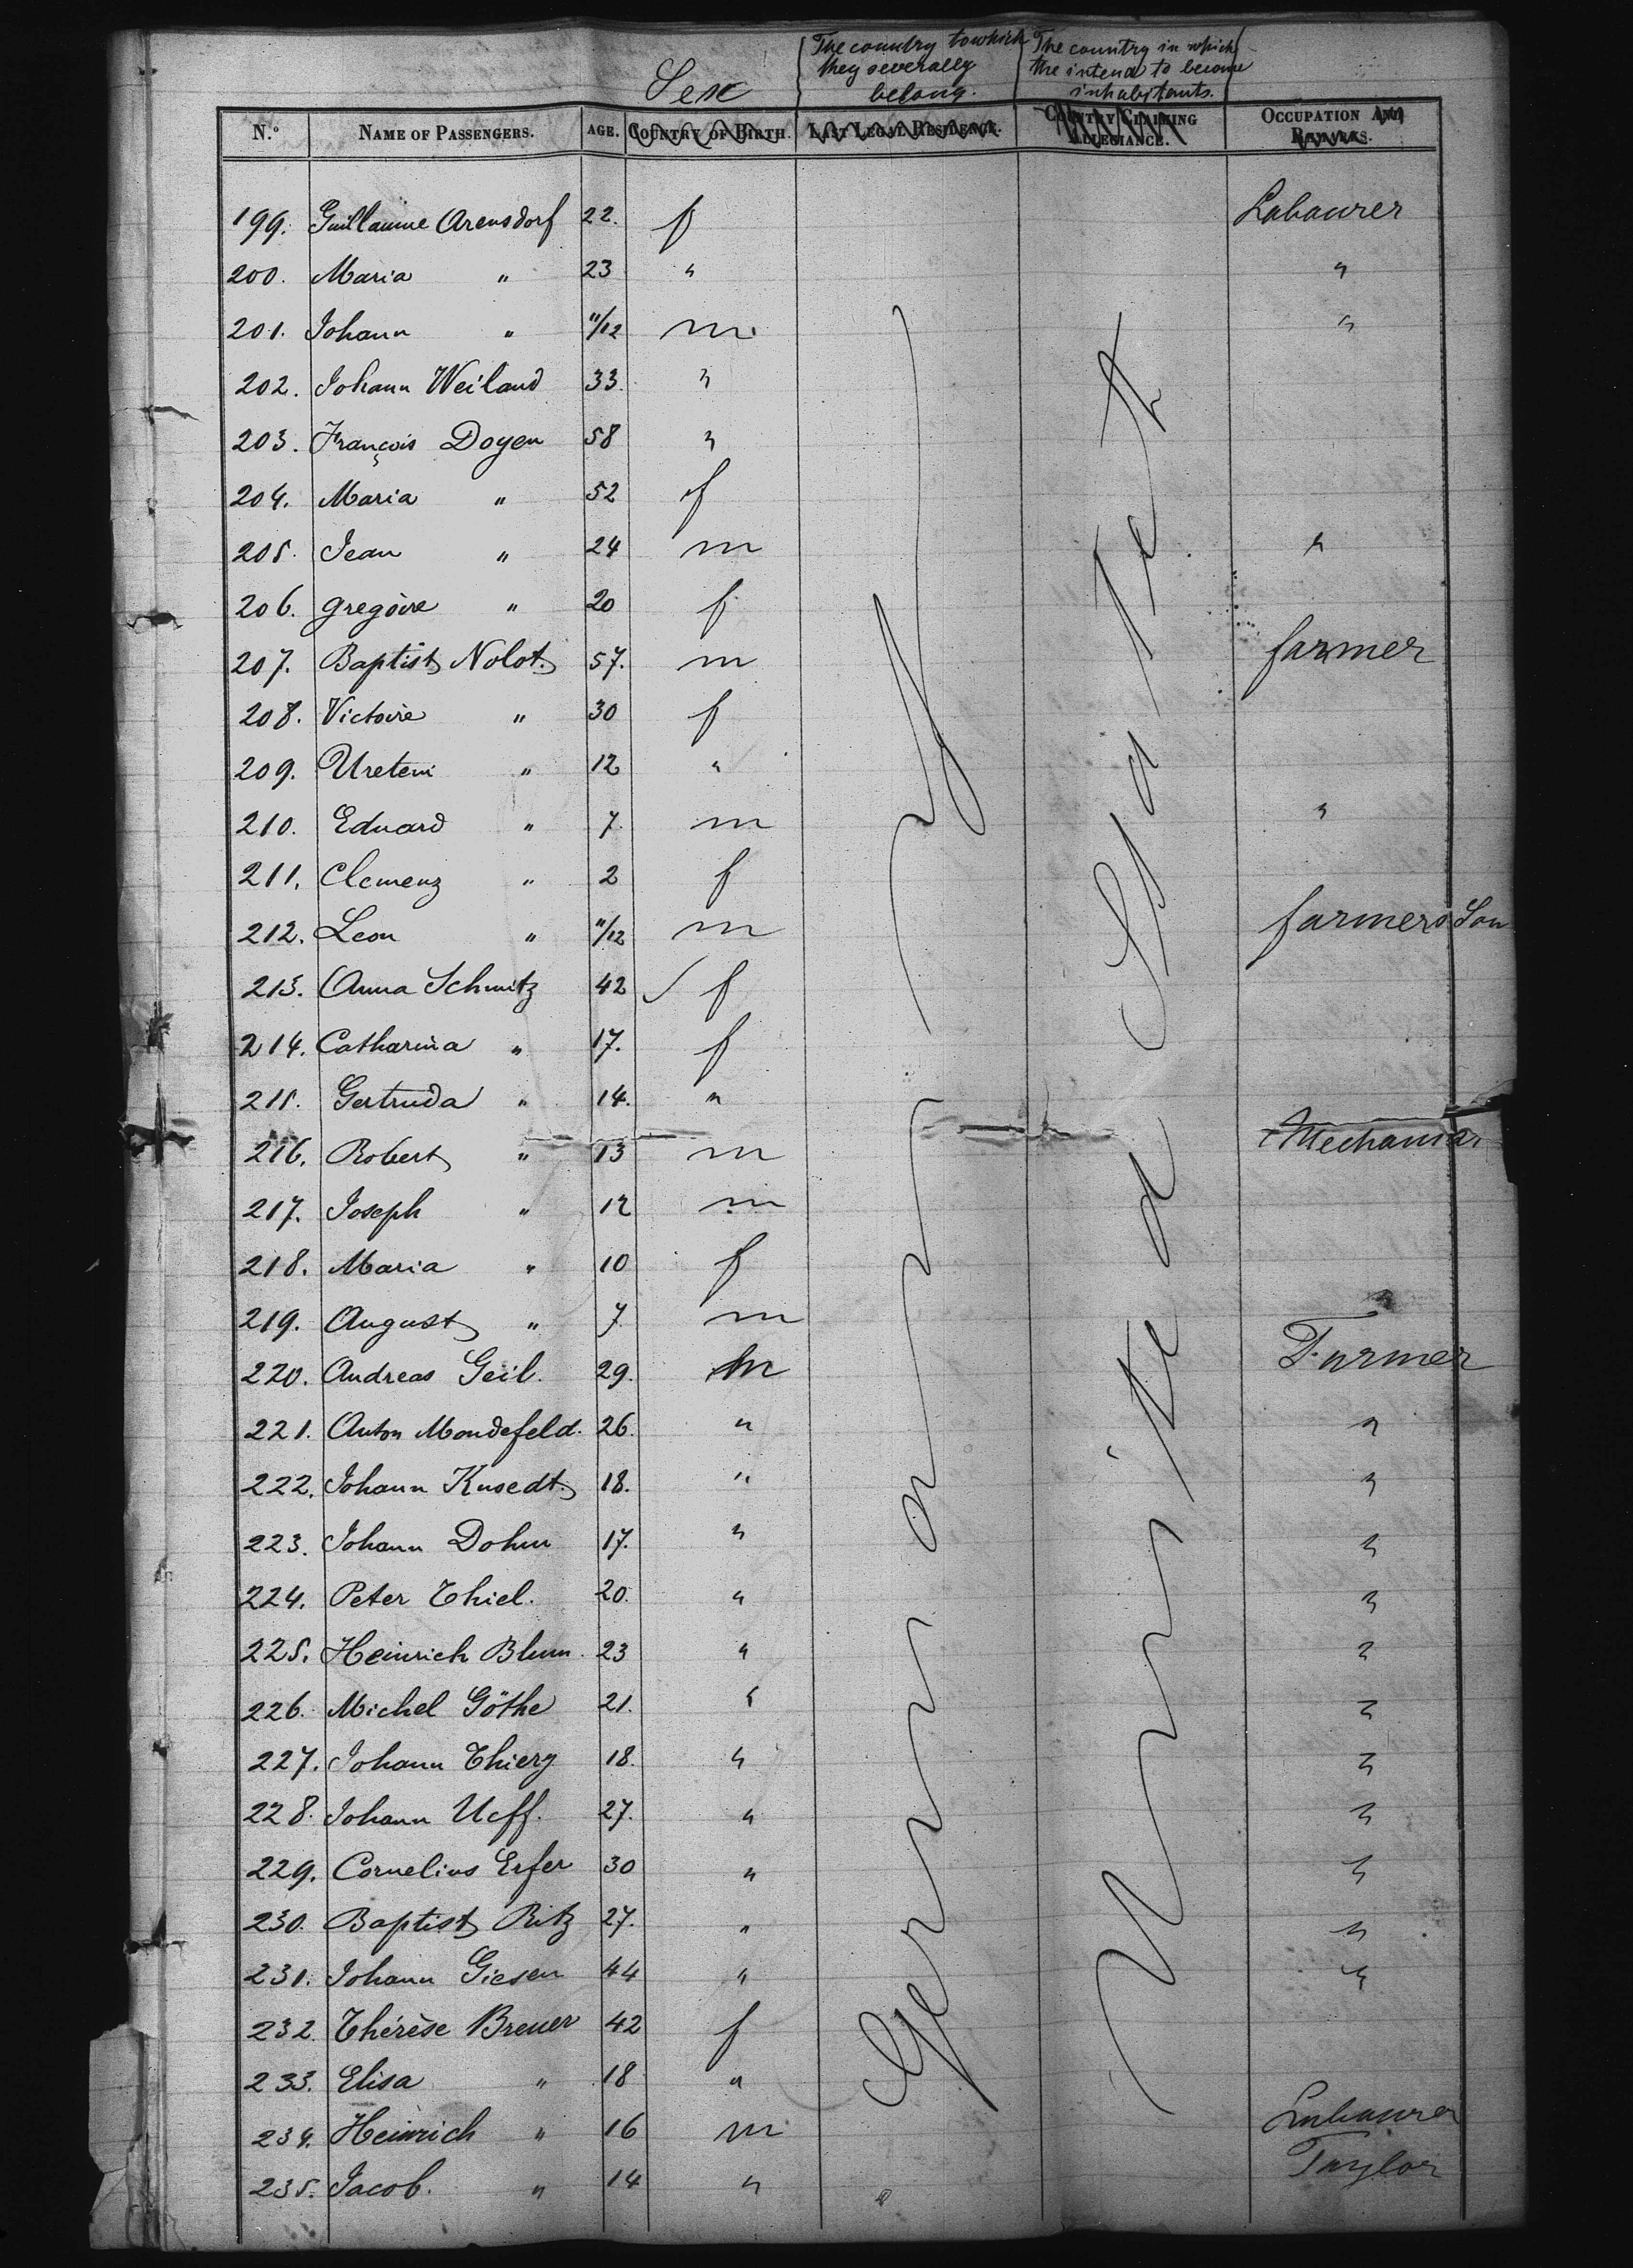 Sex
The country to which they severally belong.
The country in which the intend to become inhabitants.
N.º NAME OF PASSENGERS. AGE. COUNTRY OF BIRTH. LAST LEGAL RESIDENCE. COUNTRY CLAIMING ALLEGIANCE. OCCUPATION AND REMARKS.
199. Guillaume Arensdorf 22. f Labaurer
200. Maria " 23 " "
201. Johann " 11/12 m "
202. Johann Weiland 33. "
203. François Doyen 58 "
204. Maria " 52 f
205. Jean " 24 m "
206. Gregoire " 20 f
207. Baptist Nolot. 57. m farmer
208. Victoire " 30 f
209. " 12 "
210. Eduard " 7. m "
211. Clemenz " 2 f
212. Leon " 11/12 m farmers Son
213. Anna Schmitz 42 f
214. Catharina " 17. f
215. Gertruda " 14. "
216. Robert " 13 m
217. Joseph " 12 m
218. Maria " 10 f
219. August " 7 m
220. Andreas Geil. 29. m Farmer
221. Anton Mondefeld. 26. " "
222. Johann Knsedt. 18. " "
223. Johann Dohm 17. " "
224. Peter Thiel. 20. " "
225. Heinrich Blum. 23 " "
226. Michel Göthe 21. " "
227. Johann Thiery 18. " "
228. Johann Ueff. 27. " "
229. Cornelius Erfer 30 " "
230. Baptist Ritz 27. " "
231. Johann Giesen 44 " "
232. Thérèse Breuer 42 f
233. Elisa " 18 "
234. Heinrich " 16 m Labaurer
235. Jacob. " 14 " Taylor
Germany
United States